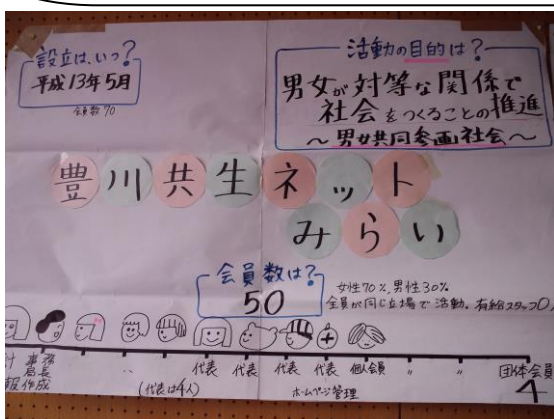 設立は、いつ?
平成13年5月
会員数70
活動の目的は?
男女が対等な関係で
社会をつくることの推進
～男女共同参画社会～
豊川共生ネット
みらい
会員数は?
50
女性70%、男性30%
全員が同じ立場で活動。有給スタッフ0人
計 事務 〃 〃 代表 代表 代表 代表 個人会員 〃 〃 団体会員
局長 4
報作成 (代表は4人) ホームページ管理